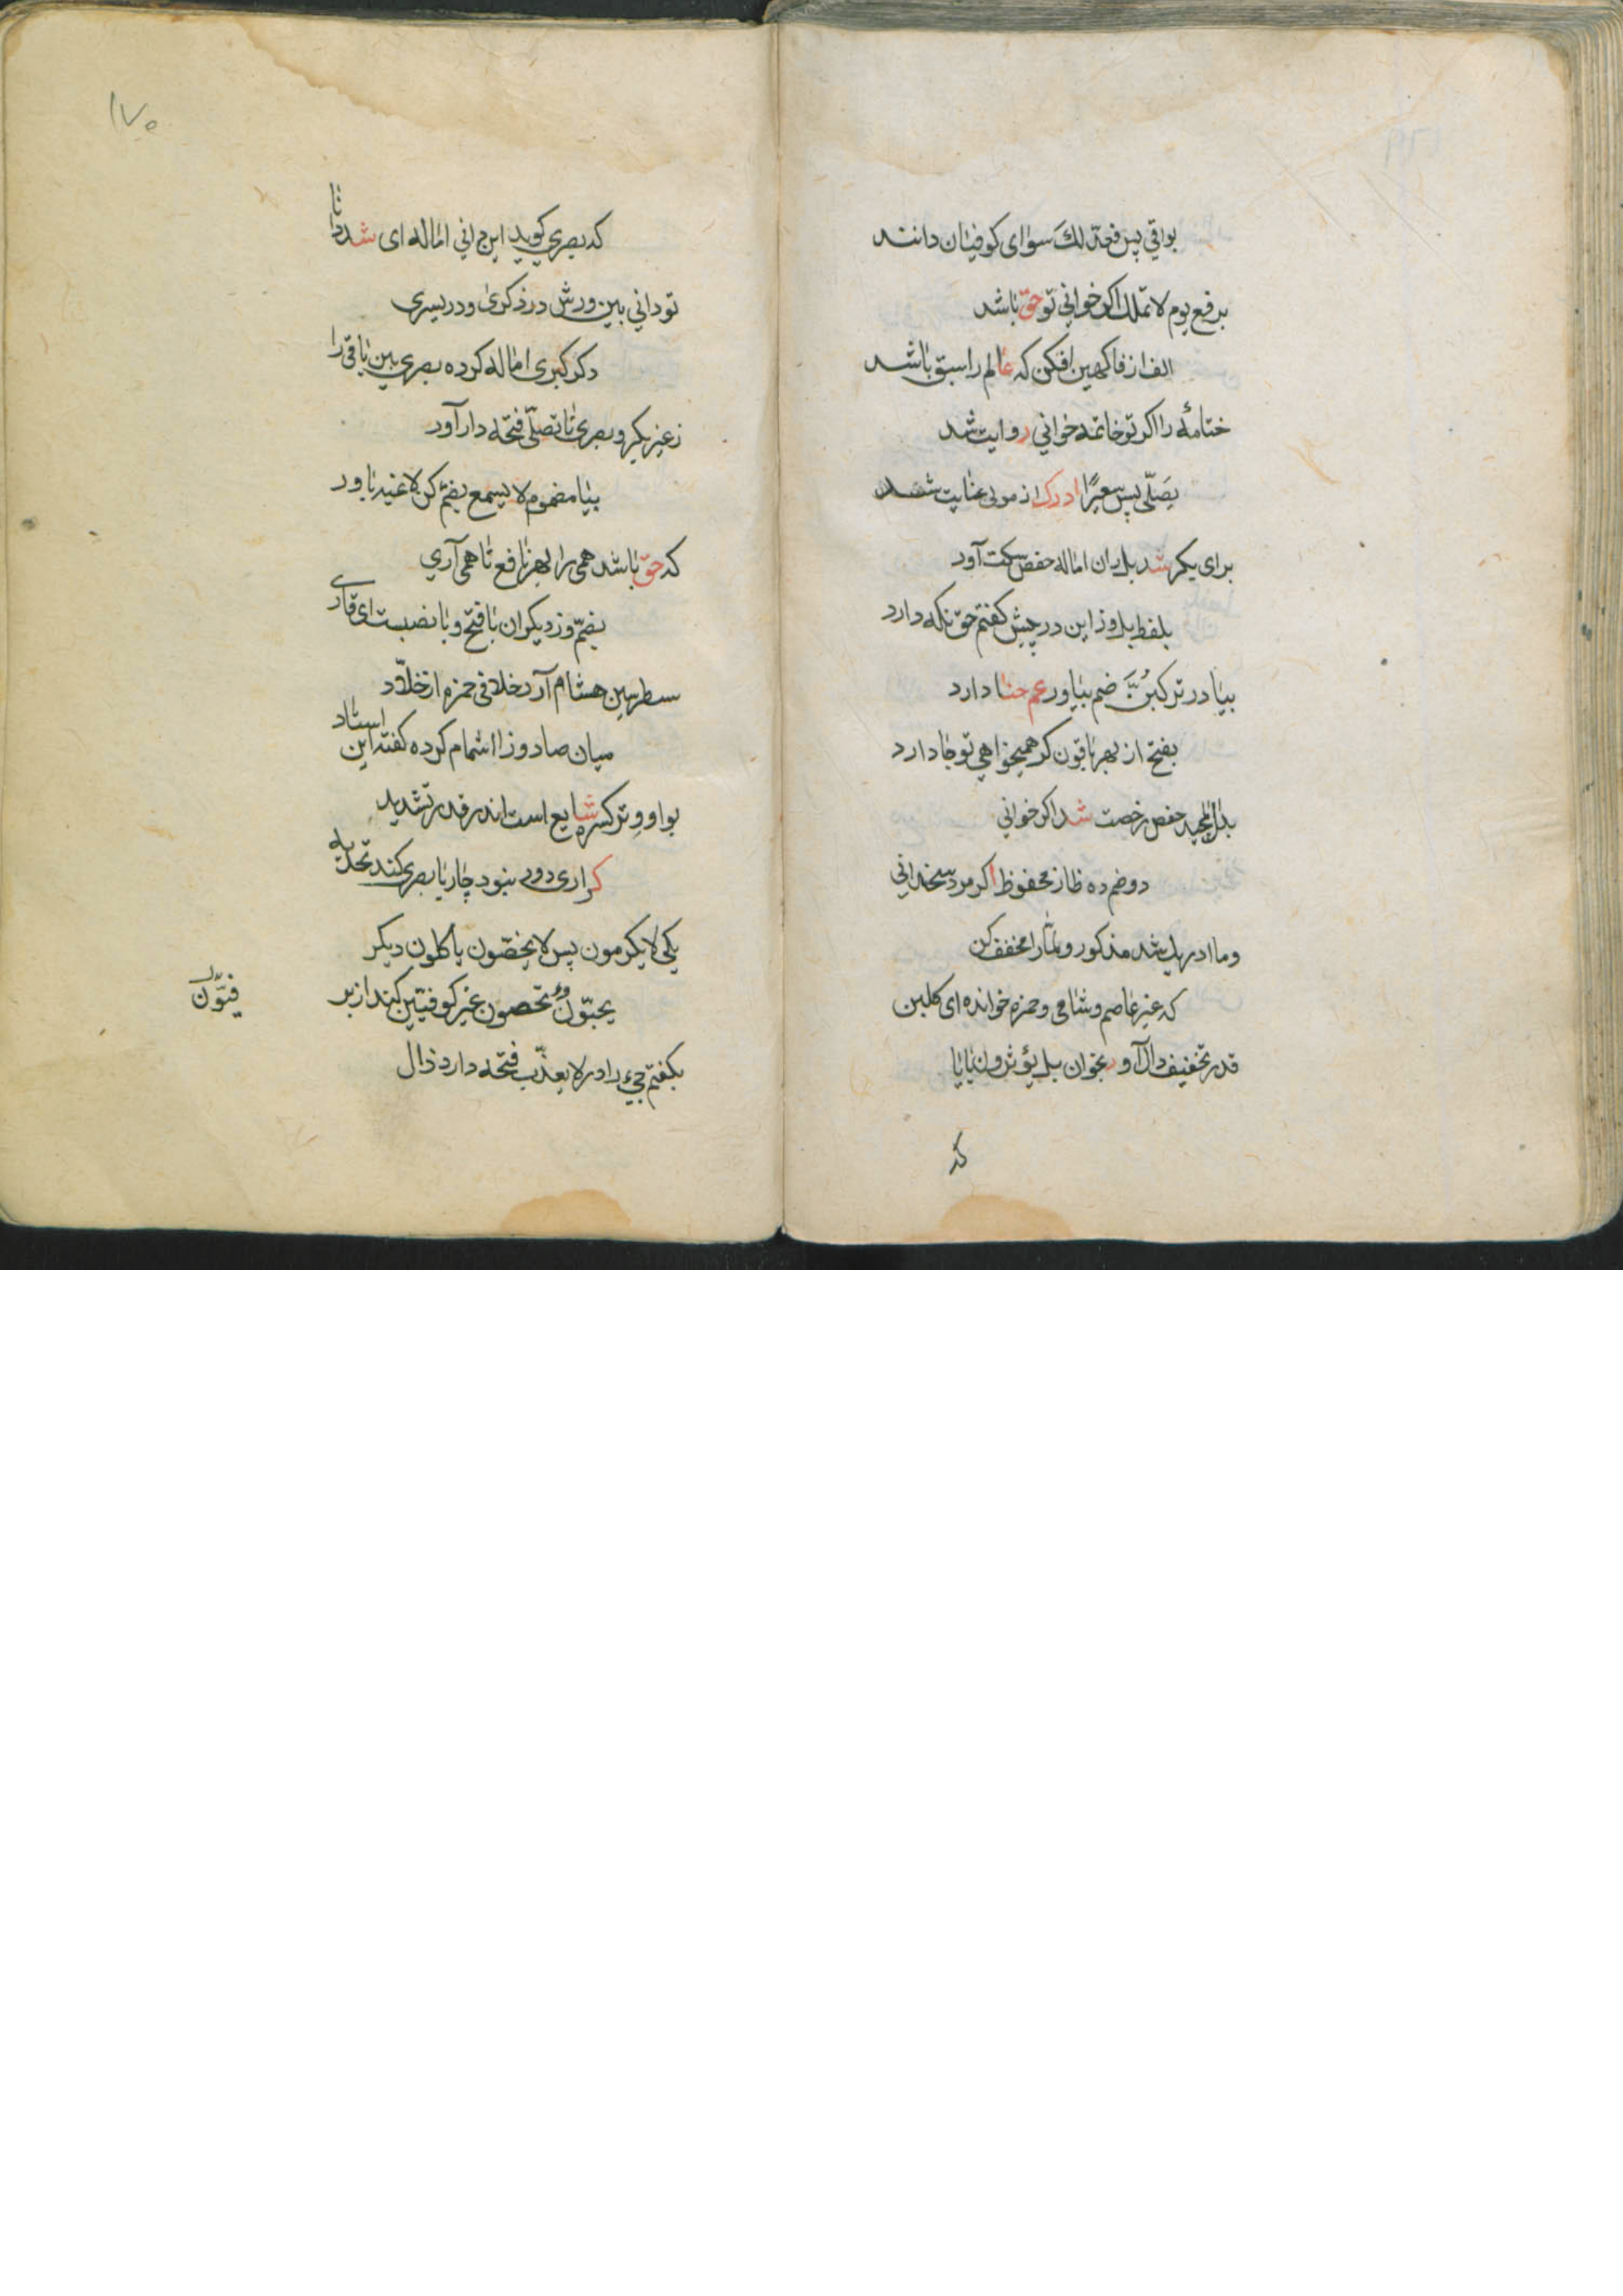 بواقي پس فعدلك سوای کوفیان دانند
برفع یوم لا تملك اکر خوانی تو حق باشد
الف از فاکهین افکن که عالم را سبق باشد
ختامهٔ را اکر تو خاتمه خوانی روایت شد
یصلّی پس سعیرًا ادرك از مولی عنایت شد
برای یکر شد بل ران اماله حفص سکت آورد
بلفظ بل وز این در پیش کفتم حق نکه دارد
بیا در ترکبنّ ضم بیاور عم حنا دارد
بفتح از بهر باقون کر همیخواهی تو جا دارد
بدال مجید حفص رخصت شد اکر خوانی
دو ضم ده ظاز محفوظ اکر مرد سخندانی
وما ادریك شد مذکور و لمّا را مخفف کن
که غیر عاصم و شامی و حمزه خوانده ای کلبن
قدر تخفیف دال آور بخوان بل یؤثرون با یا
که
۱۷۰
که بصری کوید این جانی اماله ای شد دانا
تو دانی بین ورش در ذکری و در یسری
دکر کبری اماله کرده بصری بین باقی را
زغیر یکر و بصری تا تصلّی فتحه دار آور
بیا مضموم لا یسمع بضم کن لاغیه باور
که حق باشد همی را بهر نافع تا همی آری
بضمّ وز دیکران با فتح و با نصبست ای قاری
سطر سین هشام آرد خلافی حمزه از خلّاد
میان صاد و زا اشمام کرده کفته این استاد
بواو وتر کسره شایع است اندر قدر تشدید
کراری دور بنود چار یا بصری کند تحدید
یکی لا یکرمون پس لا یحضّون یأکلون دیکر
یحبّون و تحضون غیر کوفیّین کند از بر
فیتون
بکفتم جیء را در لا یعذّب فتحه دارد ذال